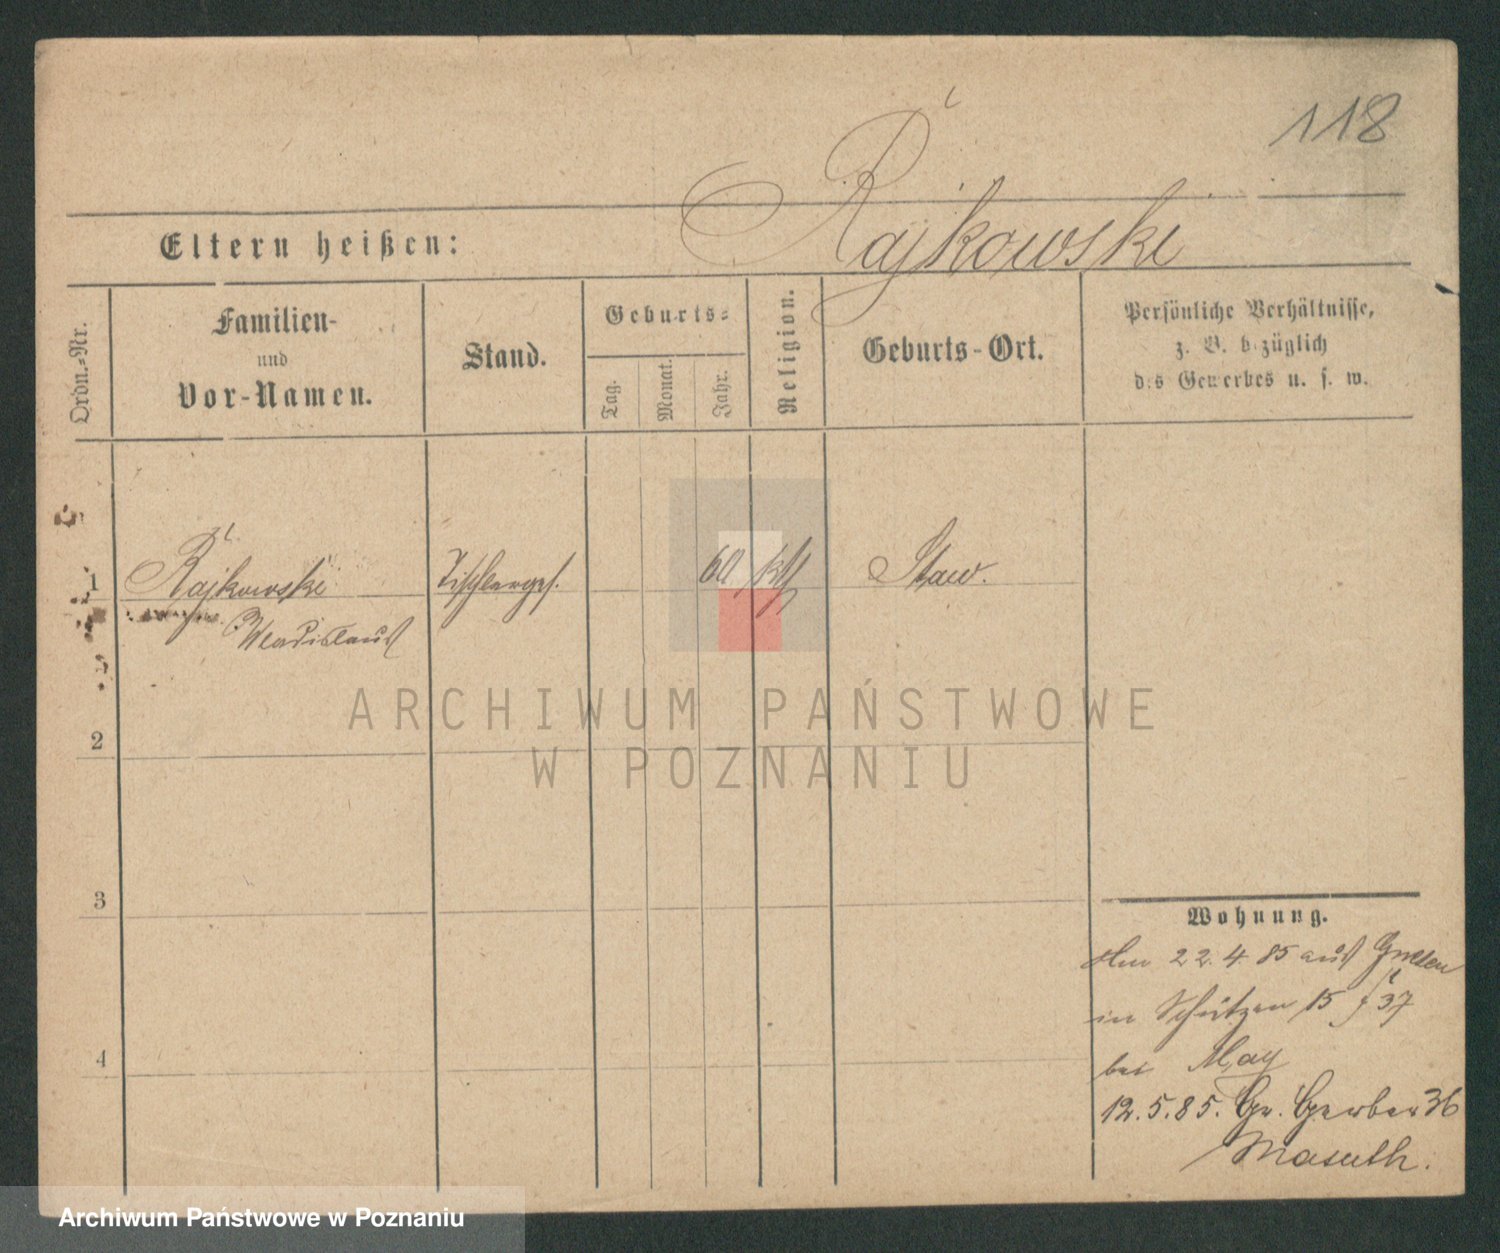 118
Rajkowski
Eltern heißen:
Ordn.-Nr.
Familien-
und
Vor-Namen.
Stand.
Geburts-
Tag.
Monat.
Jahr.
Religion.
Geburts-Ort.
Persönliche Verhältnisse,
z. B. bezüglich
des Gewerbes u. s. w.
1
Rajkowski
Wladislaus
Tischlerges.
60
kth
Staw.
2
3
4
Wohnung.
Am 22.4.85 aus Gnesen
in Schützen 15 37
bei May
12.5.85. Gr. Gerber 36
Masuth.
ARCHIWUM PAŃSTWOWE
W POZNANIU
Archiwum Państwowe w Poznaniu